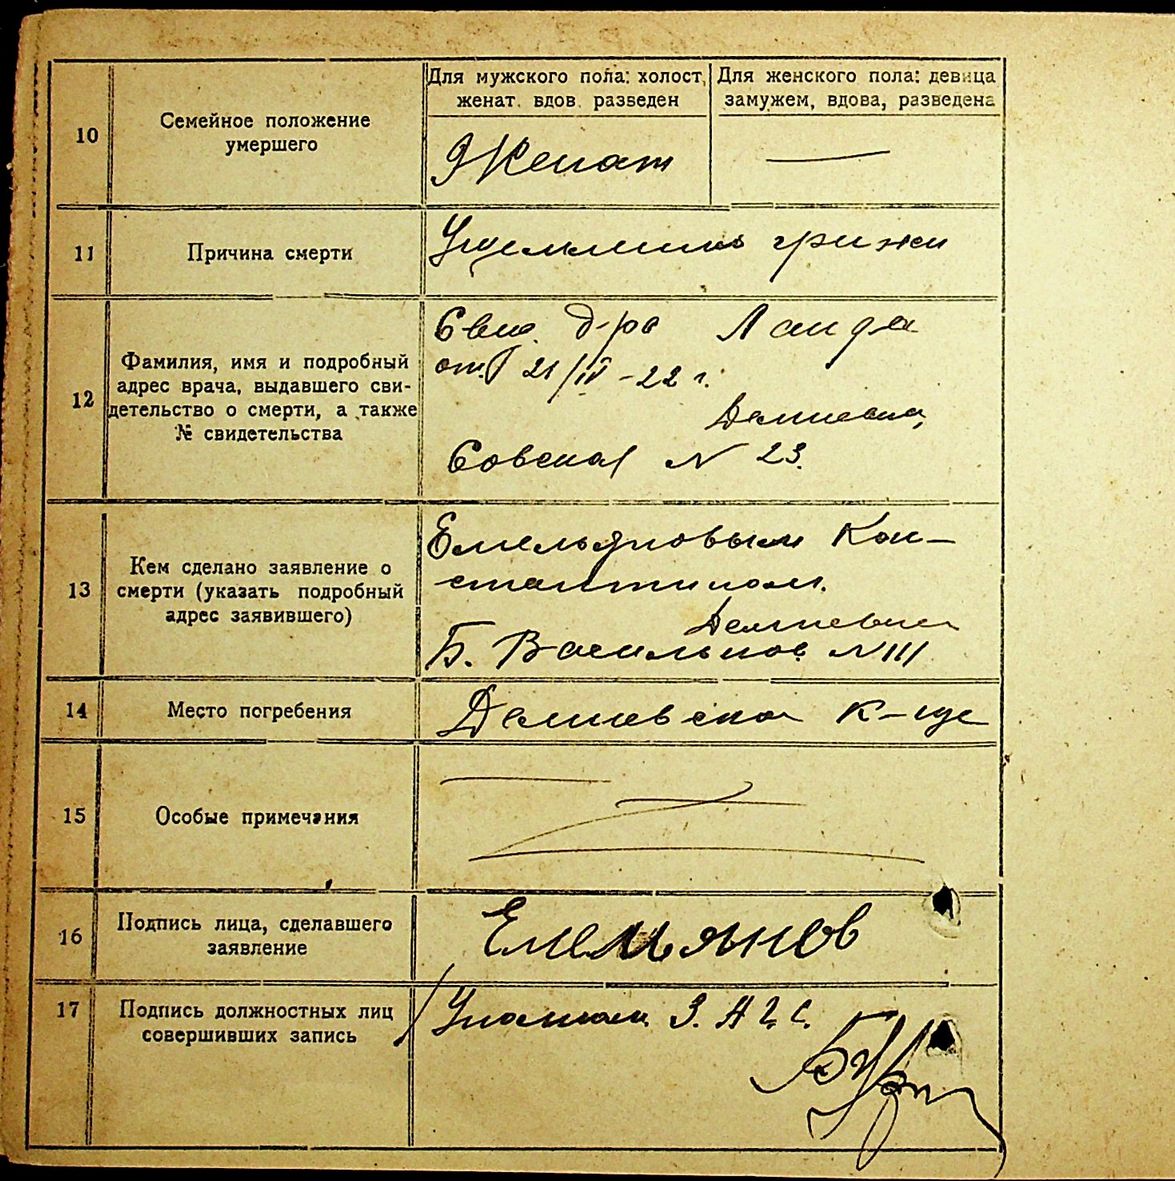 Для мужского пола: холост, женат, вдов, разведен
Для женского пола: девица замужем, вдова, разведена
10
Семейное положение
умершего
Женат
—
11
Причина смерти
Ущемление грыжи
12
Фамилия, имя и подробный
адрес врача, выдавшего сви-
детельство о смерти, а также
№ свидетельства
д-ра Ланда
от 21/IV-22 г.
Демиевка,
Совская N 23.
13
Кем сделано заявление о
смерти (указать подробный
адрес заявившего)
Емельяновым Кон-
стантином.
Демиевка
Б. Васильков. N 111
14
Место погребения
Демиевское к-ще
15
Особые примечания
16
Подпись лица, сделавшего
заявление
Емельянов
17
Подпись должностных лиц
совершивших запись
З.А.Г.С.